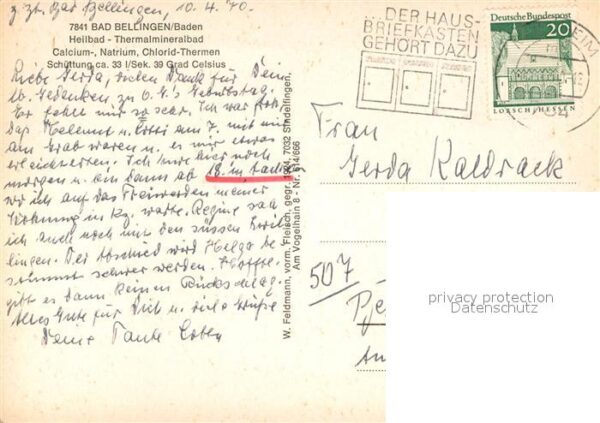 z. Zt. Bad Bellingen, 10.4.70.
7841 BAD BELLINGEN/Baden
Heilbad - Thermalmineralbad
Calcium-, Natrium, Chlorid-Thermen
Schüttung ca. 33 l/Sek. 39 Grad Celsius
Liebe Gerda, vielen Dank für Dein
lb. Gedenken zu O. G.'s Geburtstag.
Er fehlt mir so sehr. Ich war froh
daß Hellmut u. Lotti am 7. mit mir
am Grab waren u. es mir etwas
erleichterten. Ich bin hier noch
morgen u. bin dann ab 18. in
wo ich auf das Freiwerden meiner
Wohnung in warte. Regine sah
ich auch noch mit den süssen Zwil-
lingen. Der Abschied wird Helga be-
stimmt schwer werden. Hofftl.
gibt es dann keinen Rückschlag.
Alles Gute für Dich u. viele Grüße
Deine Tante
W. Feldmann, vorm. Fleisch, gegr. 1904, 7032 Sindelfingen,
Am Vogelhain 8 - Nr. 614/666
DER HAUS-
BRIEFKASTEN
GEHÖRT DAZU
Deutsche Bundespost
20
LORSCH/HESSEN
Frau
Gerda Kaldrack
507
privacy protection
Datenschutz